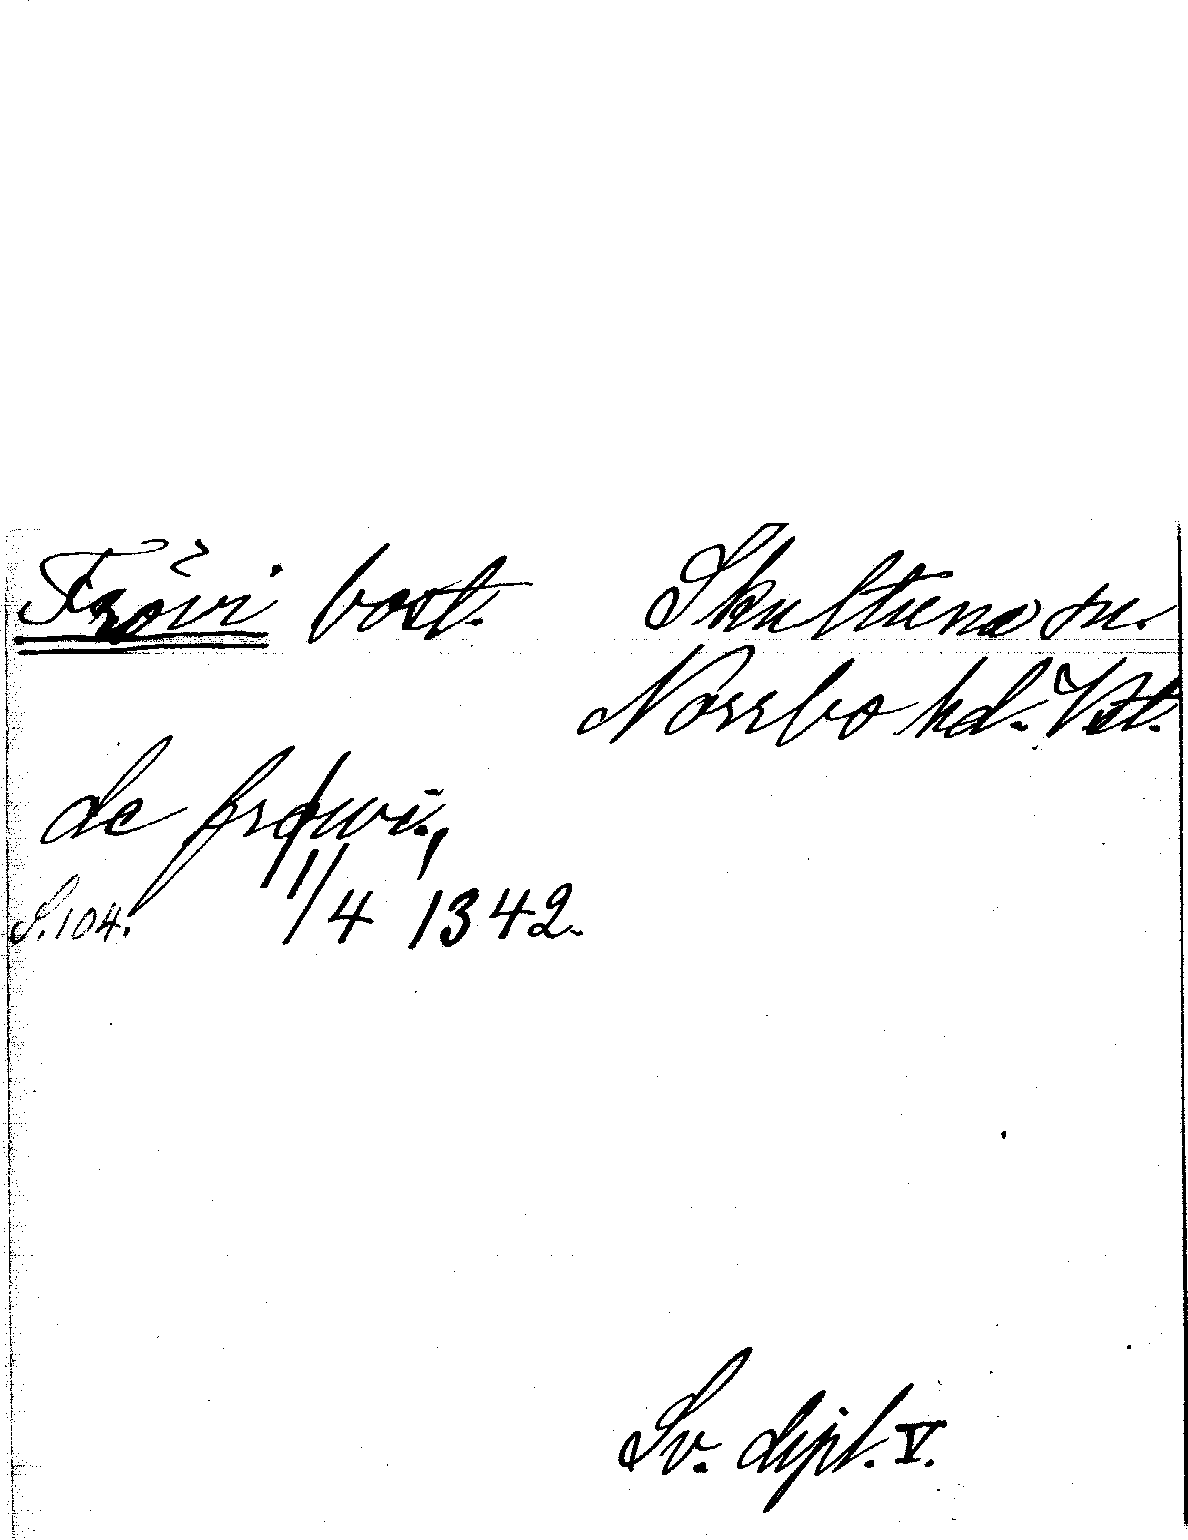 Frövi bost. Skultuna sn.
Norrbo hd. Vstl.
de frøwi,
S. 104. 11/4 1342.
Sv. dipl. V.